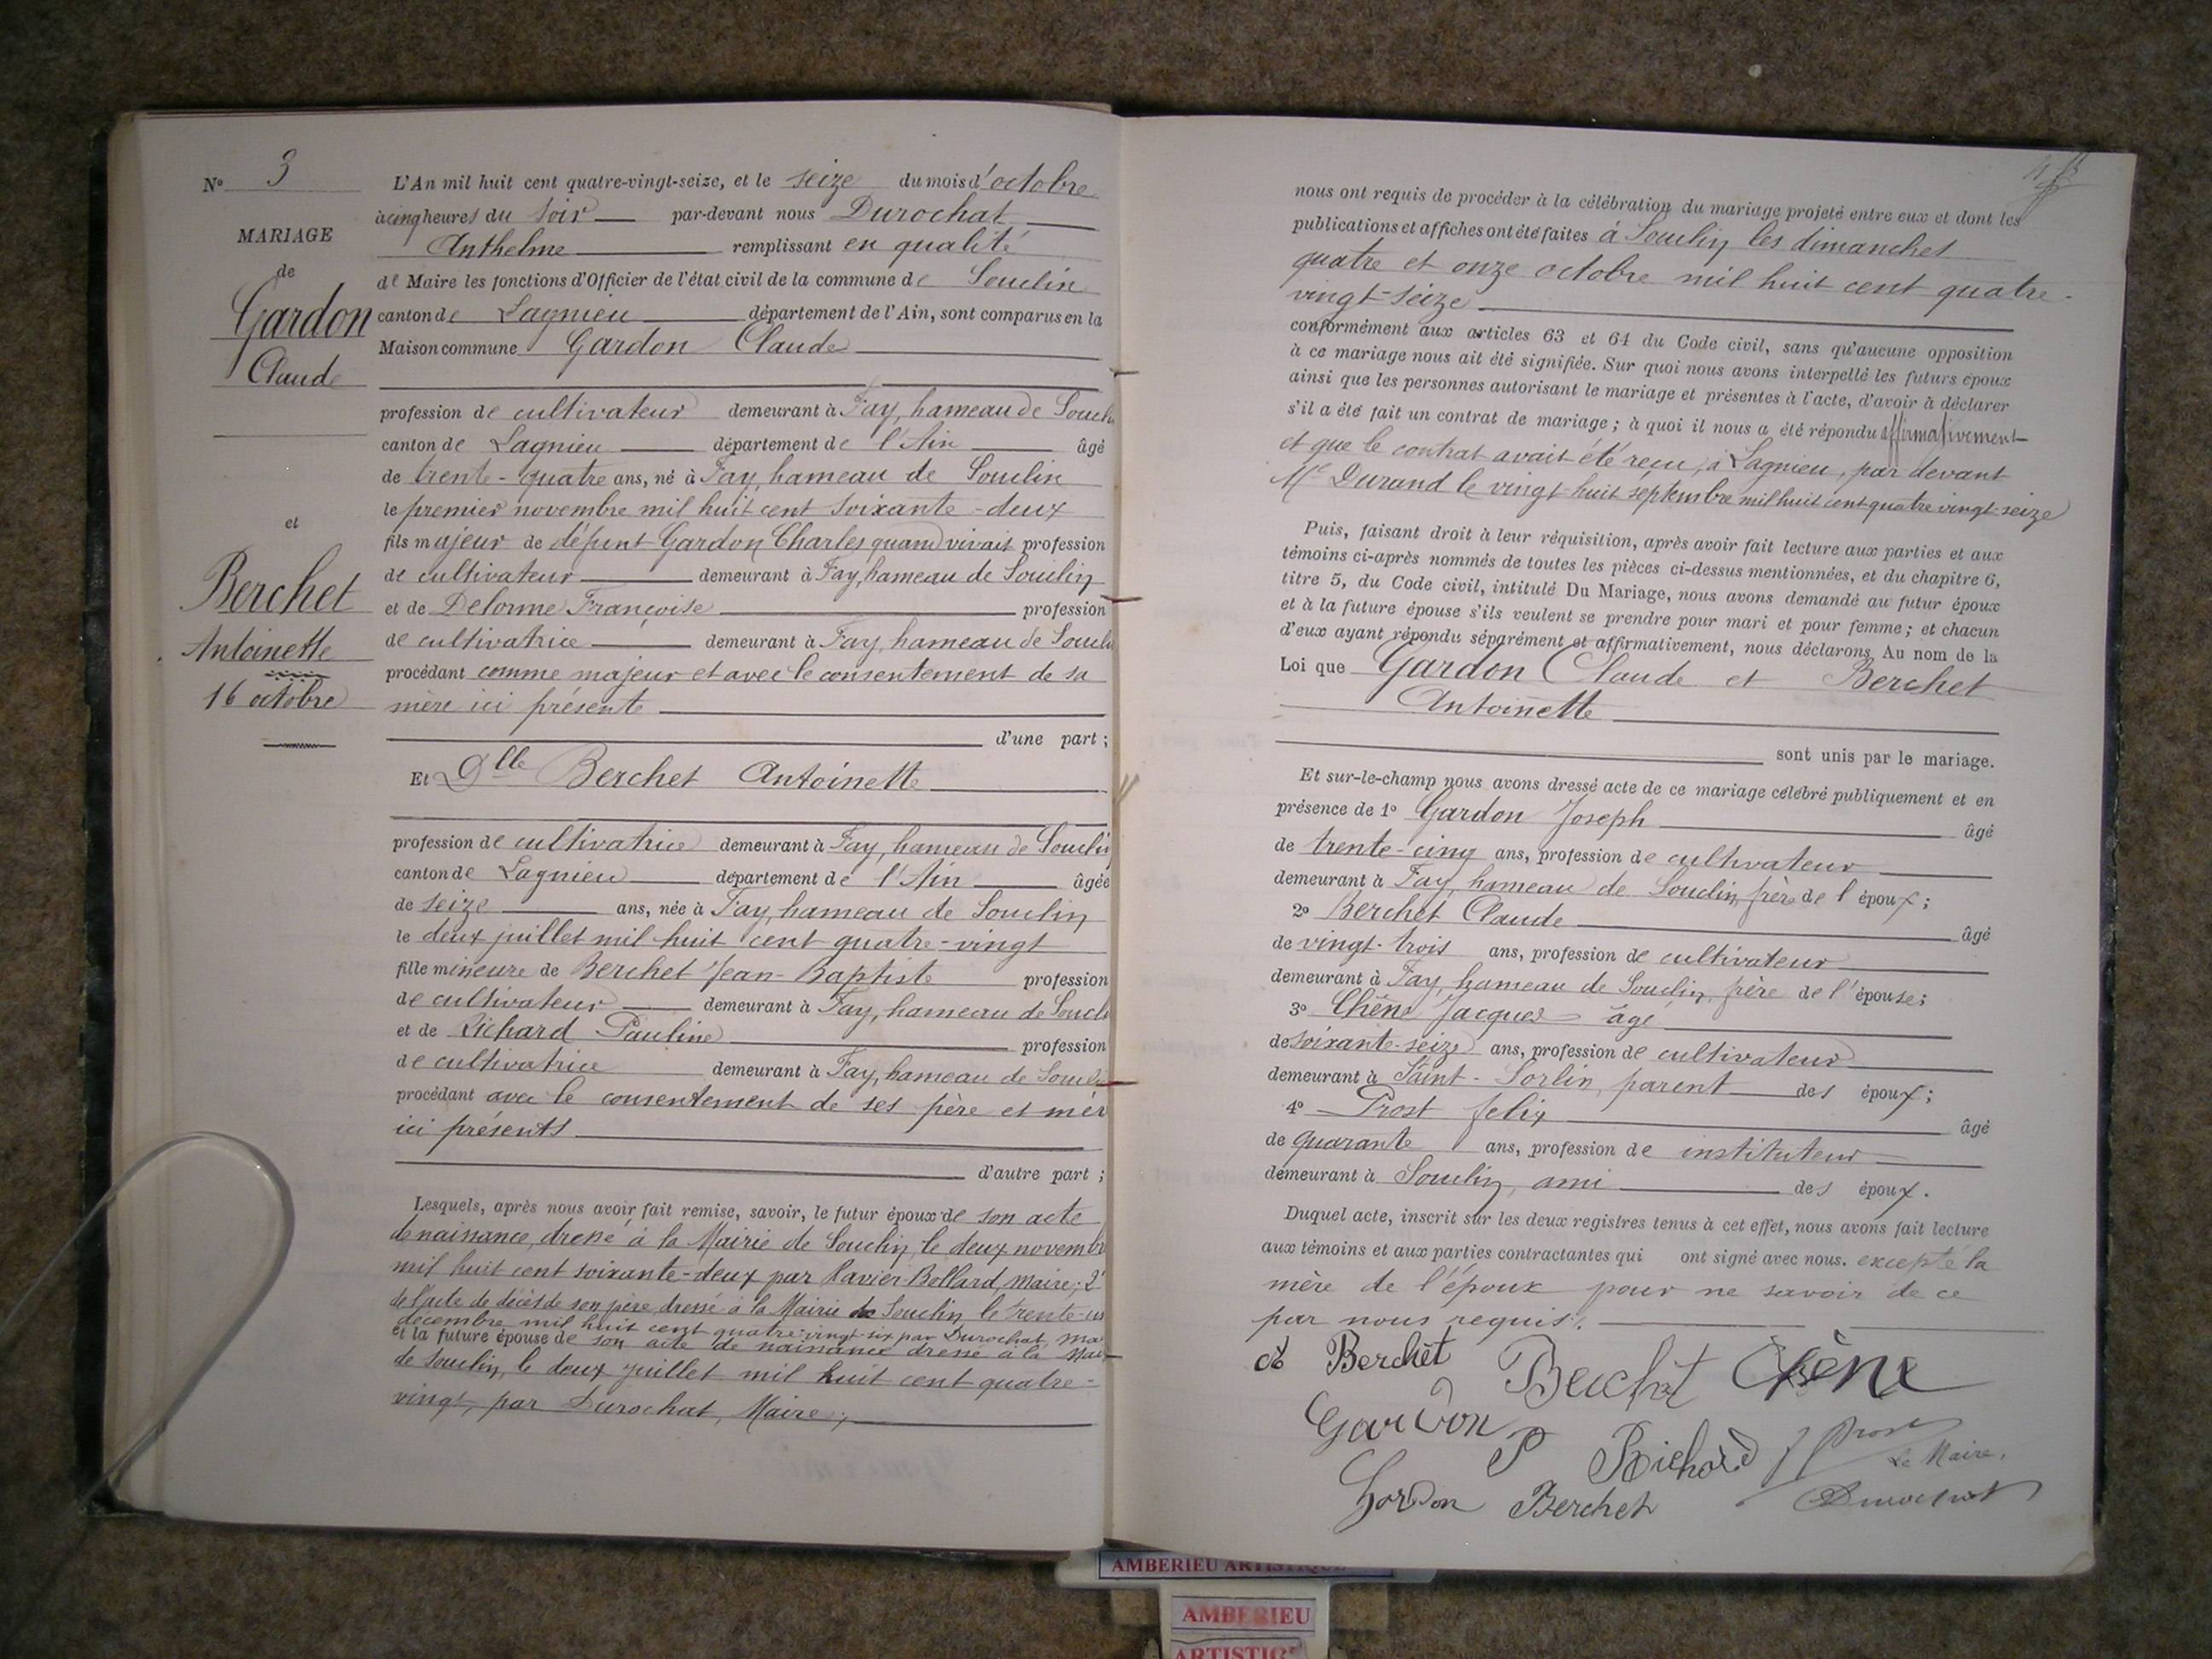 N° 3
MARIAGE
de
Gardon
Claude
et
Berchet
Antoinette
16 octobre
L'An mil huit cent quatre-vingt-seize, et le seize du mois d'octobre
à cinq heures du soir par-devant nous Durochat
Anthelme remplissant en qualité
de Maire les fonctions d'Officier de l'état civil de la commune de Souclin
canton de Lagnieu département de l'Ain, sont comparus en la
Maison commune Gardon Claude
profession de cultivateur demeurant à Fay, hameau de Souclin
canton de Lagnieu département de l'Ain âgé
de trente-quatre ans, né à Fay, hameau de Souclin
le premier novembre mil huit cent soixante-deux
fils majeur de défunt Gardon Charles quand vivait profession
de cultivateur demeurant à Fay, hameau de Souclin
et de Delorme Françoise profession
de cultivatrice demeurant à Fay, hameau de Souclin
procédant comme majeur et avec le consentement de sa
mère ici présente
d'une part ;
Et Dlle Berchet Antoinette
profession de cultivatrice demeurant à Fay, hameau de Souclin
canton de Lagnieu département de l'Ain âgée
de seize ans, née à Fay, hameau de Souclin
le deux juillet mil huit cent quatre-vingt
fille mineure de Berchet Jean-Baptiste profession
de cultivateur demeurant à Fay, hameau de Soucli
et de Richard Pauline profession
de cultivatrice demeurant à Fay, hameau de Soucli
procédant avec le consentement de ses père et mèr
ici présents
d'autre part ;
Lesquels, après nous avoir fait remise, savoir, le futur époux de son acte
de naissance, dressé à la Mairie de Souclin, le deux novembr
mil huit cent soixante-deux par Ravier-Bollard, Maire ; 2°
de l'acte de décès de son père dressé à la Mairie de Souclin le trente-un
décembre mil huit cent quatre-vingt-six par Durochat, Mai
et la future épouse de son acte de naissance dressé à la Mai
de Souclin, le deux juillet mil huit cent quatre-
vingt, par Durochat, Maire ;
nous ont requis de procéder à la célébration du mariage projeté entre eux et dont les
publications et affiches ont été faites à Souclin les dimanches
quatre et onze octobre mil huit cent quatre-
vingt-seize
conformément aux articles 63 et 64 du Code civil, sans qu'aucune opposition
à ce mariage nous ait été signifiée. Sur quoi nous avons interpellé les futurs époux
ainsi que les personnes autorisant le mariage et présentes à l'acte, d'avoir à déclarer
s'il a été fait un contrat de mariage ; à quoi il nous a été répondu affirmativement
et que le contrat avait été reçu, à Lagnieu, par devant
Me Durand le vingt-huit septembre mil huit cent quatre vingt-seize
Puis, faisant droit à leur réquisition, après avoir fait lecture aux parties et aux
témoins ci-après nommés de toutes les pièces ci-dessus mentionnées, et du chapitre 6,
titre 5, du Code civil, intitulé Du Mariage, nous avons demandé au futur époux
et à la future épouse s'ils veulent se prendre pour mari et pour femme ; et chacun
d'eux ayant répondu séparément et affirmativement, nous déclarons Au nom de la
Loi que Gardon Claude et Berchet
Antoinette
sont unis par le mariage.
Et sur-le-champ nous avons dressé acte de ce mariage célébré publiquement et en
présence de 1° Gardon Joseph âgé
de trente-cinq ans, profession de cultivateur
demeurant à Fay, hameau de Souclin, frère de l'époux ;
2° Berchet Claude âgé
de vingt-trois ans, profession de cultivateur
demeurant à Fay, hameau de Souclin, frère de l'épouse ;
3° Chêne Jacques âgé
de soixante-seize ans, profession de cultivateur
demeurant à Saint-Sorlin, parent des époux ;
4° Prost felix âgé
de quarante ans, profession de instituteur
demeurant à Souclin, ami des époux.
Duquel acte, inscrit sur les deux registres tenus à cet effet, nous avons fait lecture
aux témoins et aux parties contractantes qui ont signé avec nous. excepté la
mère de l'époux pour ne savoir de ce
par nous requis.
Berchet Berchet Chêne
Gardon P Richard Prost
Le Maire,
Gardon Berchet Durochat
AMBERIEU ARTISTIQUE
AMBERIEU
ARTISTIQ